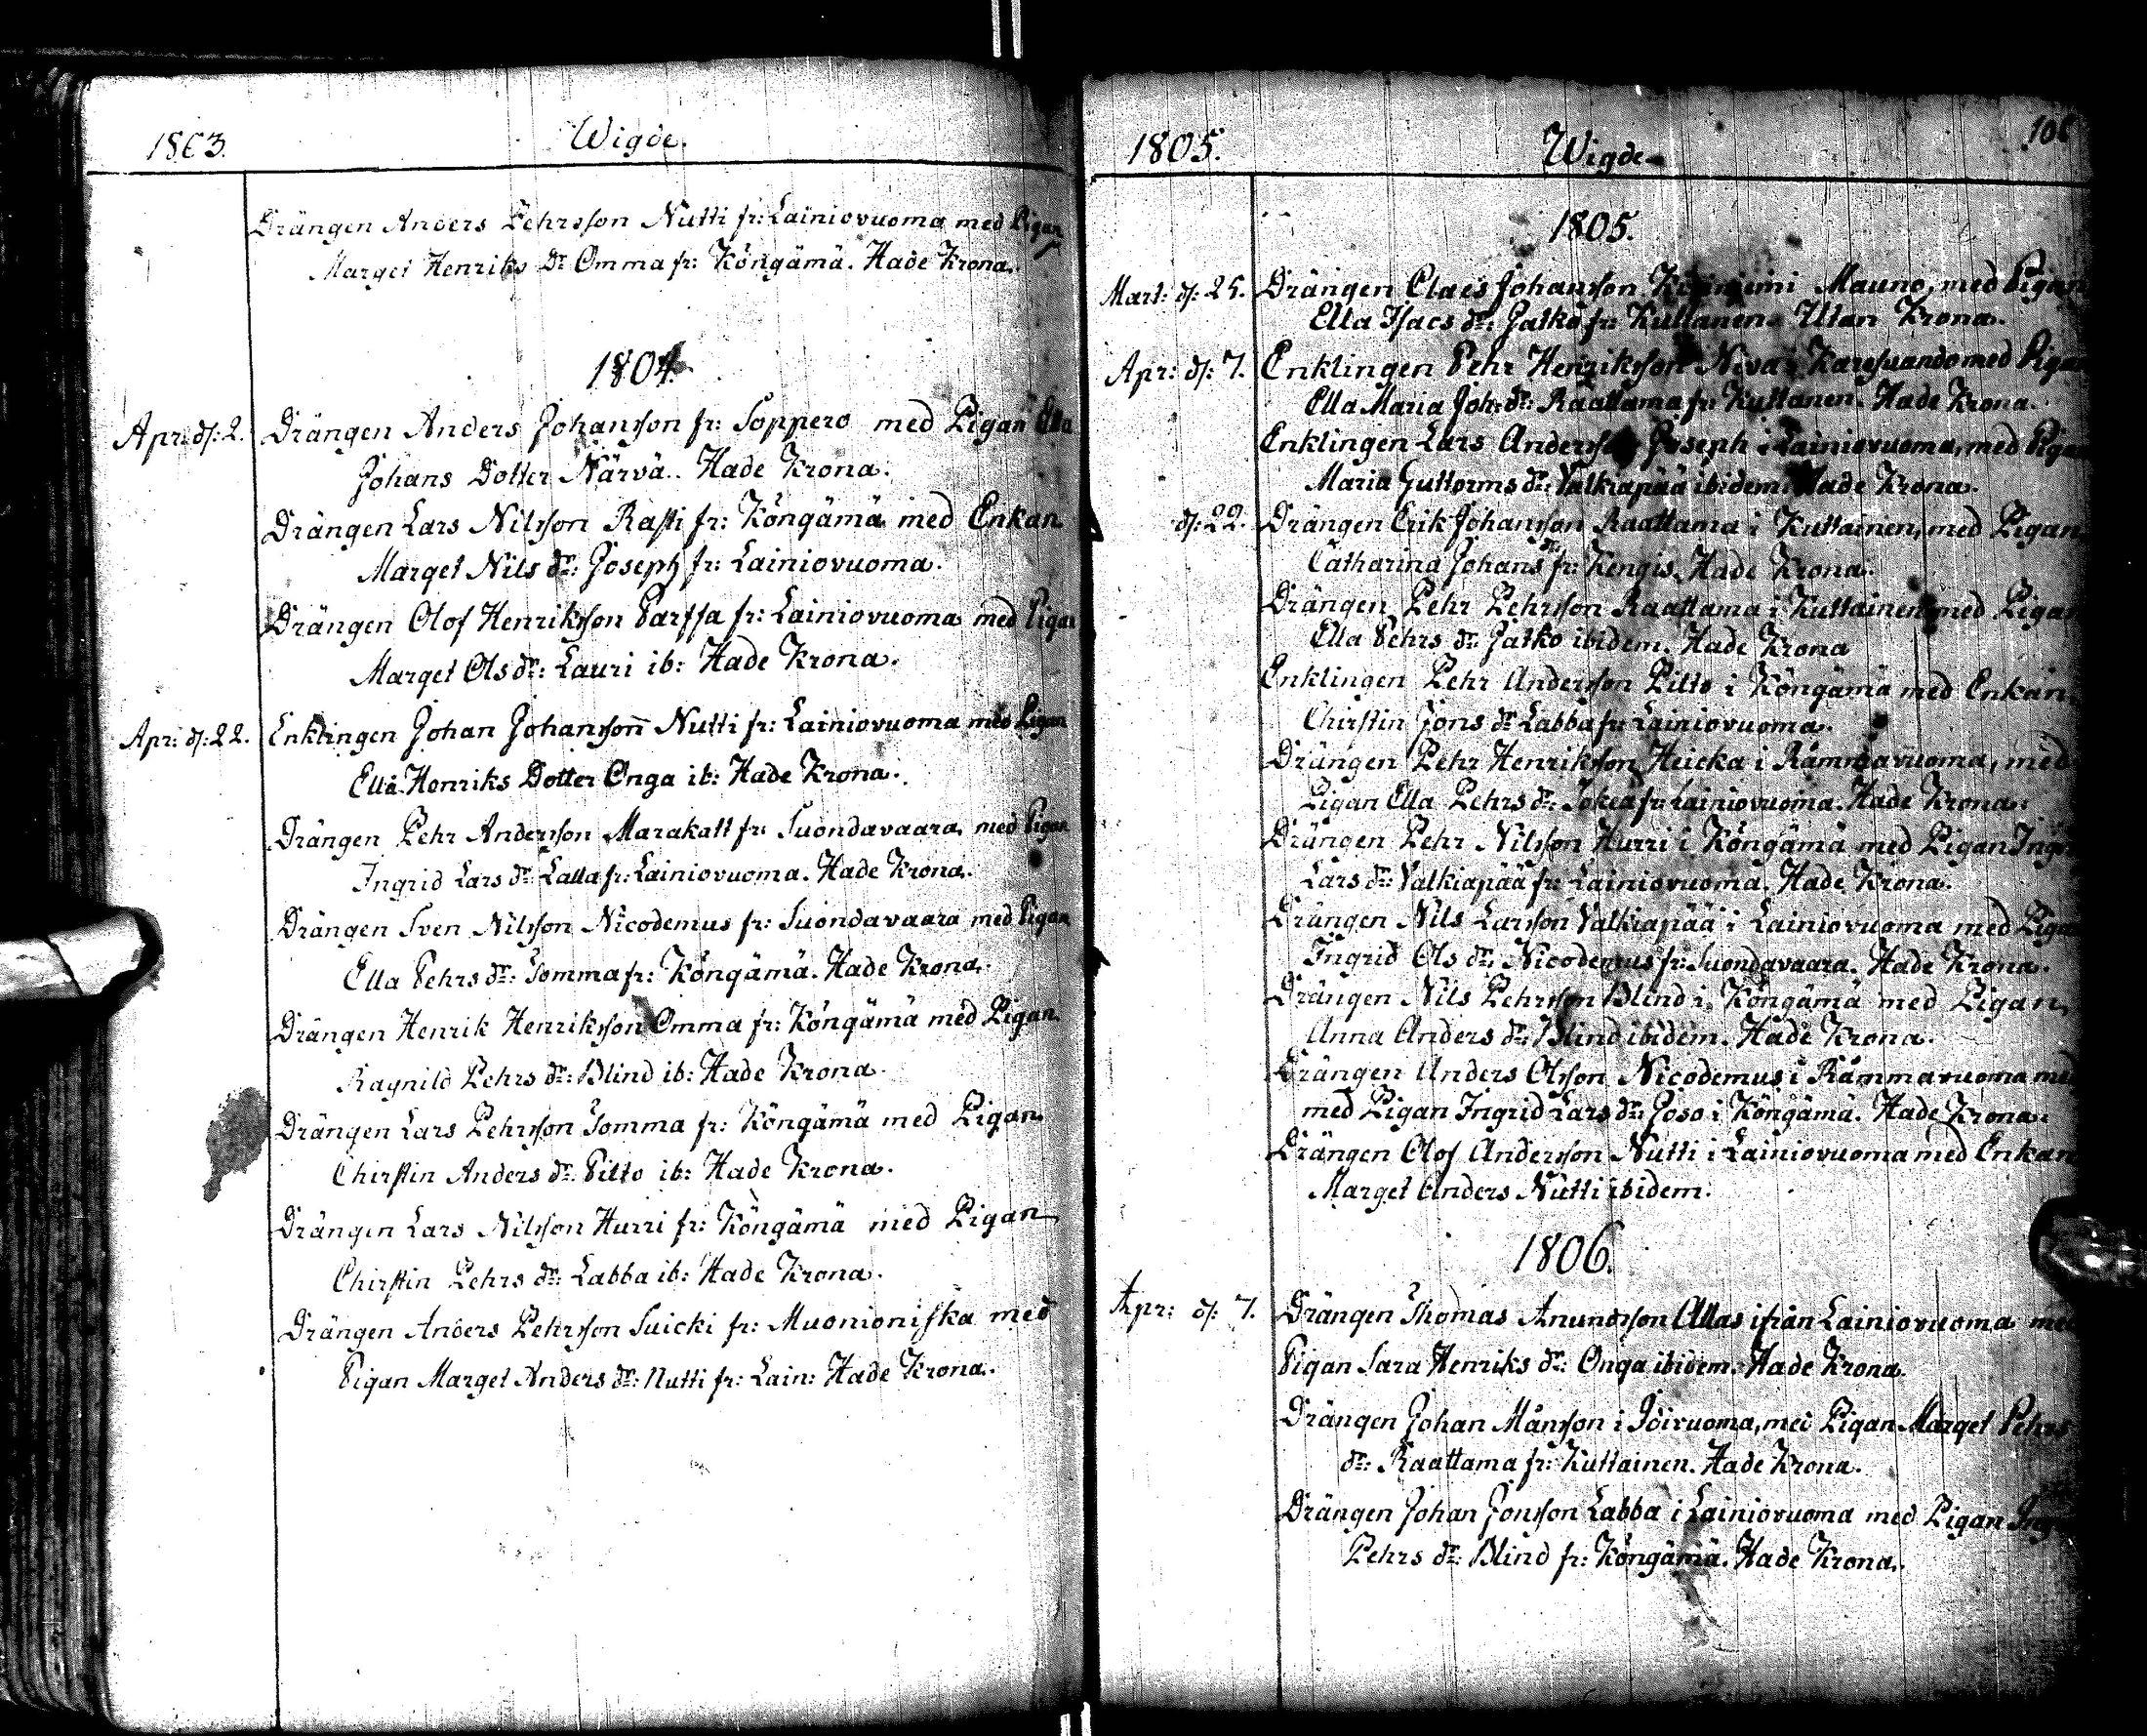 1803.
Wigde.
Drängen Anders Pehrsson Nutti fr: Lainiovuoma med Pigan
Marget Henriks Dr Omma fr: Köngämä. Hade Krona.
1804.
Apr: d: 2. Drängen Anders Johansson fr: Soppero med Pigan Ella
Johans Dotter Närvä. Hade Krona.
Drängen Lars Nilsson Rasti fr: Köngämä med Enkan
Marget Nils dr: Joseph fr: Lainiovuoma.
Drängen Olof Henriksson Parffa fr: Lainiovuoma med Pigan
Marget Ols dr: Lauri ib: Hade Krona.
Apr: d: 22. Enklingen Johan Johansson Nutti fr: Lainiovuoma med Pigan
Ella Henriks Dotter Onga ib: Hade Krona.
Drängen Pehr Andersson Marakatt fr: Suondavaara med Pigan
Ingrid Lars dr: Lalla fr: Lainiovuoma. Hade Krona.
Drängen Sven Nilsson Nicodemus fr: Suondavaara med Pigan
Ella Pehrs dr: Somma fr: Köngämä. Hade Krona.
Drängen Henrik Henriksson Omma fr: Köngämä med Pigan
Ragnild Pehrs dr: Blind ib: Hade Krona.
Drängen Lars Pehrsson Somma fr: Köngämä med Pigan
Chirstin Anders dr: Pitto ib: Hade Krona.
Drängen Lars Nilsson Hurri fr: Köngämä med Pigan
Chirstin Pehrs dr: Labba ib: Hade Krona.
Drängen Anders Pehrsson Suicki fr: Muonioniska med
Pigan Marget Anders dr: Nutti fr: Lain: Hade Krona.
1805.
Wigde
1805.
Mart: d: 25. Drängen Claes Johansson i Mauno, med Pigan
Ella Isacs dr: Jatko fr: Kuttanen. Utan Krona.
Apr: d: 7. Enklingen Pehr Henriksson Niva i Karesuando med Pigan
Ella Maria Joh: dr: Raattama fr: Kuttanen. Hade Krona.
Enklingen Lars Andersson Joseph i Lainiovuoma, med Pigan
Maria Guttorms dr: Valkiapää ibidem. Hade Krona.
d: 22. Drängen Erik Johansson Raattama i Kuttainen, med Pigan
Catharina Johans dr: fr: Kengis. Hade Krona.
Drängen Pehr Pehrsson Raattama i Kuttainen med Pigan
Ella Pehrs dr: Jatko ibidem. Hade Krona
Enklingen Pehr Andersson Pitto i Köngämä med Enkan
Chirstin Jons dr Labba fr: Lainiovuoma.
Drängen Pehr Henriksson Heicka i Rämmavuoma, med
Pigan Ella Pehrs dr: fr: Lainiovuoma. Hade Krona.
Drängen Pehr Nilsson Hurri i Köngämä med Pigan
Lars dr: Valkiapää fr: Lainiovuoma. Hade Krona.
Drängen Nils Larsson Valkiapää i Lainiovuoma med Pigan
Ingrid Ols dr: Nicodemus fr: Suondavaara. Hade Krona.
Drängen Nils Pehrsson Blind i Köngämä med Pigan
Anna Anders dr: Blind ibidem. Hade Krona.
Drängen Anders Olsson Nicodemus i Rämmavuoma med
med Pigan Ingrid Lars dr: Joso i Köngämä. Hade Krona.
Drängen Olof Andersson Nutti i Lainiovuoma med Enkan
Marget Anders Nutti ibidem.
1806.
Apr: d: 7. Drängen Thomas Anundsson Allas ifrån Lainiovuoma med
Pigan Sara Henriks dr: Onga ibidem. Hade Krona.
Drängen Johan Månsson i Idivuoma, med Pigan Marget Pehrs
dr: Raattama fr: Kuttainen. Hade Krona.
Drängen Johan Jonsson Labba i Lainiovuoma med Pigan
Pehrs dr: Blind fr: Köngämä. Hade Krona.